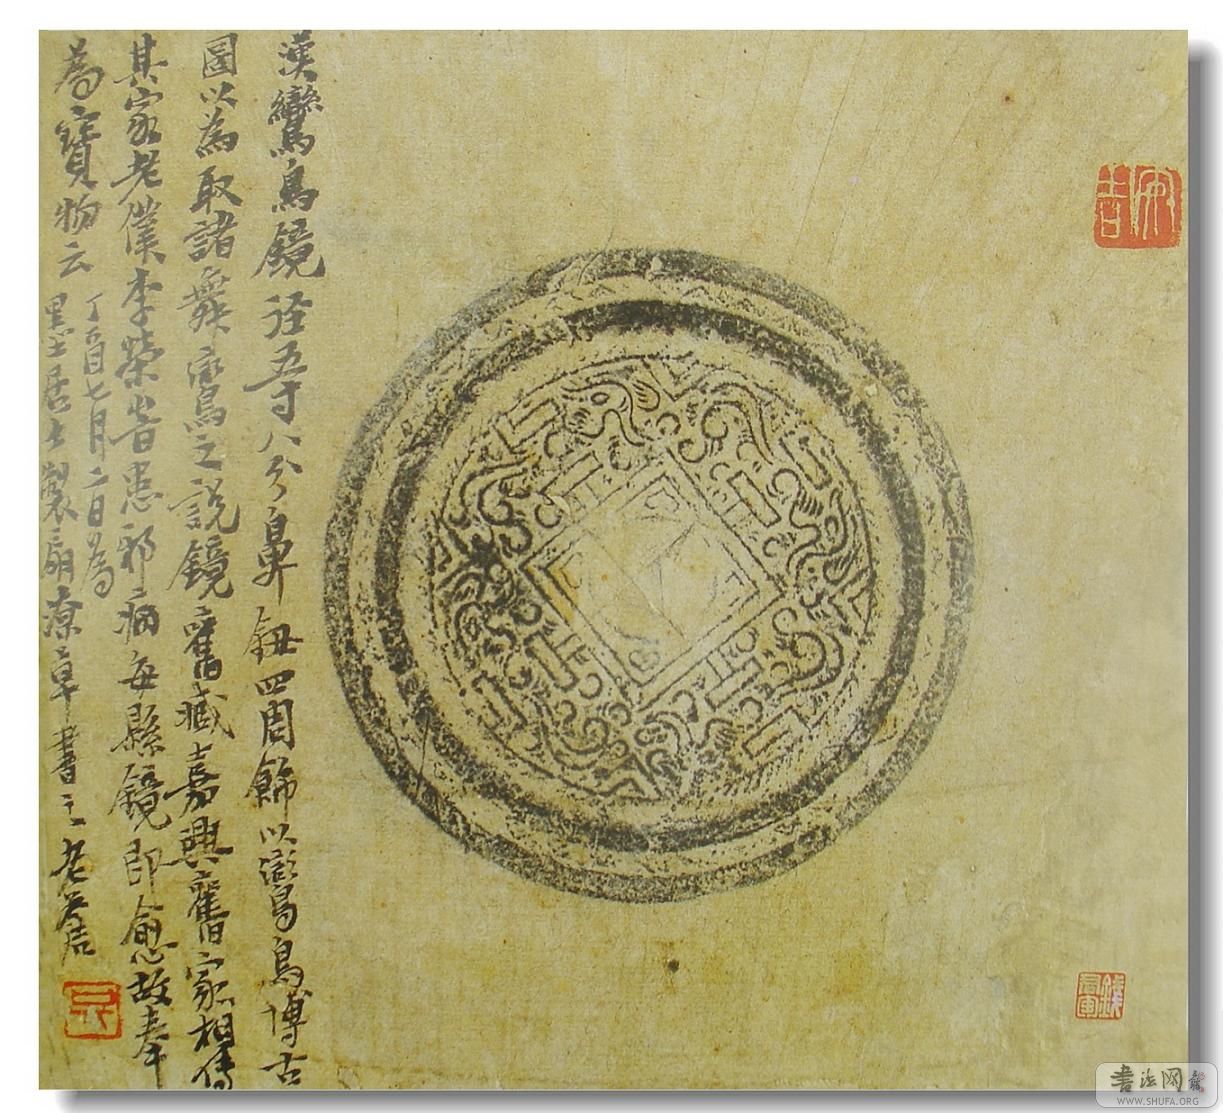 漢鸞鳥鏡徑五寸八分鼻鈕四周飾以鸞鳥博古
圖以為取諸舞鸞之說鏡舊藏嘉興舊家相傳
其家老僕李榮昔患邪病每縣鏡即愈故奉
為寶物云
丁酉七月二日為
墨士居士製扇潦草書之老
书法网
WWW.SHUFA.ORG